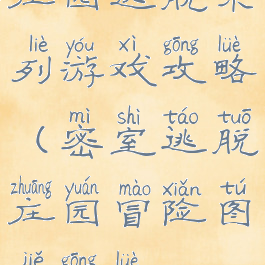 liè yóu xì gōng lüè
列游戏攻略
mì shì táo tuō
（密室逃脱
zhuāng yuán mào xiǎn tú
庄园冒险图
jiě gōng lüè